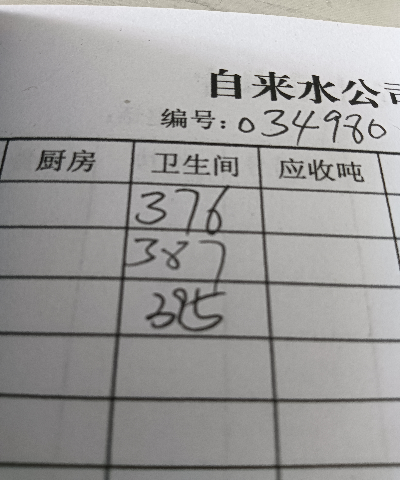 自来水公司
编号:034980
厨房 卫生间 应收吨
376
387
395